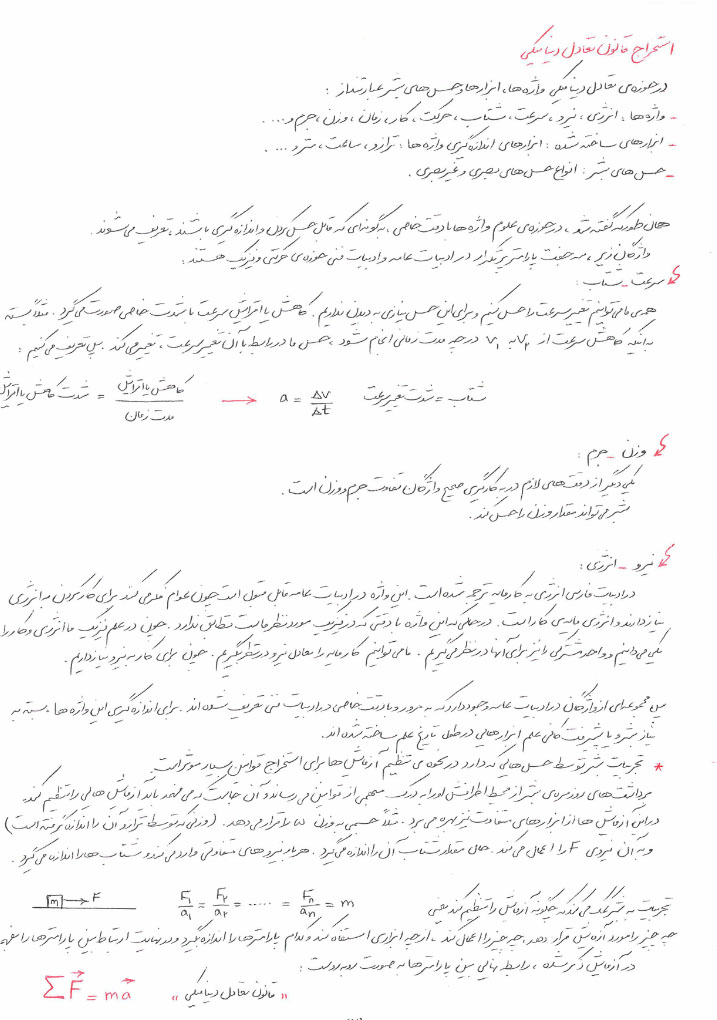 استخراج قانون تعادل دینامیکی
در حوزه‌ی تعادل دینامیکی واژه‌ها، ابزارها و حس‌های بشر عبارتنداز :
- واژه‌ها : انرژی ، نیرو ، سرعت ، شتاب ، حرکت ، کار ، زمان ، وزن ، جرم و ... .
- ابزارهای ساخته شده : ابزارهای اندازه‌گیری واژه‌ها : ترازو ، ساعت ، متر و ... .
- حس‌های بشر : انواع حس‌های بصری و غیربصری .
همان طور که گفته شد ، در حوزه‌ی علوم واژه‌ها با دقت خاصی ، به گونه‌ای که قابل حس کردن و اندازه‌گیری باشند ، تعریف می‌شوند .
واژگان زیر ، سه جفت پارامتر پرتکرار در ادبیات عامه و ادبیات فنی حوزه‌ی حرکتی و فیزیک هستند :
سرعت - شتاب :
همه‌ی ما می‌توانیم تغییر سرعت را حس کنیم و برای این حس نیازی به دیدن نداریم . کاهش یا افزایش سرعت با شدت خاصی صورت می‌گیرد . مثلاً بسته
به اینکه کاهش سرعت از V۲ به V۱ در چه مدت زمانی انجام شود ، حس ما در رابطه با آن تغییر سرعت ، تغییر می‌کند . پس تعریف می‌کنیم :
شتاب = شدت تغییر سرعت a = ΔV/Δt → کاهش یا افزایش / مدت زمان = شدت کاهش یا افزایش
وزن - جرم :
یکی دیگر از دقت‌های لازم در به کارگیری صحیح واژگان تفاوت جرم و وزن است .
بشر می‌تواند مقدار وزن را حس کند .
نیرو - انرژی :
در ادبیات فارسی انرژی به کارمایه ترجمه شده است . این واژه در ادبیات عامه قابل قبول است چون عوام فکر می‌کنند برای کار کردن به انرژی
نیاز دارند و انرژی مایه‌ی کار است . در حالی که این واژه با دقتی که در فیزیک مورد نظر ماست تطابق ندارد . چون در علم فیزیک ما انرژی و کار را
یکی می‌دانیم و واحد مشترکی را نیز برای آنها در نظر می‌گیریم . ما می‌توانیم کارمایه را معادل نیرو در نظر بگیریم . چون برای کار به نیرو نیاز داریم .
پس مجموعه‌ای از واژگان در ادبیات عامه وجود دارد که به مرور و با دقت خاصی در ادبیات فنی تعریف شده‌اند . برای اندازه‌گیری این واژه‌ها ، بسته به
نیاز بشر و با پیشرفت کلی علم ابزارهایی در طول تاریخ علم ساخته شده‌اند .
* تجربیات بشر توسط حس‌هایی که دارد در نحوه‌ی تنظیم آزمایش‌ها برای استخراج قوانین بسیار موثر است .
برداشت‌های روزمره‌ی بشر از محیط اطرافش او را به درک مبهمی از قوانین می‌رساند و آن حالت که می‌فهمد باید آزمایش‌هایی را تنظیم کند .
در این آزمایش‌ها از ابزارهای متفاوت نیز بهره می‌برد . مثلاً جسمی به وزن w را قرار می‌دهد . (وزنی که توسط ترازو آن را اندازه گرفته است)
و به آن نیروی F را اعمال می‌کند . حال مقدار شتاب آن را اندازه می‌گیرد . هر بار نیروهای متفاوتی وارد می‌کند و شتاب‌ها را اندازه می‌گیرد .
تجربیات به بشر کمک می‌کند که چگونه آزمایش را تنظیم کند یعنی F₁/a₁ = F۲/a۲ = ..... = Fn/an = m m F
چه چیز را مورد آزمایش قرار دهد ، چه چیز را اعمال کند . از چه ابزاری استفاده کند و کدام پارامترها را اندازه بگیرد و در نهایت ارتباط بین پارامترها را بفهمد
در آزمایش ذکر شده ، رابطه نهایی بین پارامترها به صورت روبه‌روست :
" قانون تعادل دینامیکی " ΣF = ma